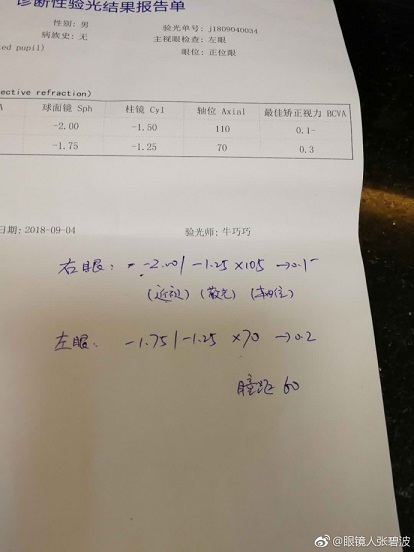 诊断性验光结果报告单
性别: 男
验光单号: j1809040034
病族史: 无
主视眼检查: 左眼
ted pupil)
眼位: 正位眼
ective refraction)
A 球面镜 Sph 柱镜 Cyl 轴位 Axial 最佳矫正视力 BCVA
-2.00 -1.50 110 0.1-
-1.75 -1.25 70 0.3
日期: 2018-09-04
验光师: 牛巧巧
右眼: -2.00/-1.25×105→0.1-
(近视) (散光) (轴位)
左眼: -1.75/-1.25×70→0.2
瞳距 60
@眼镜人张碧波